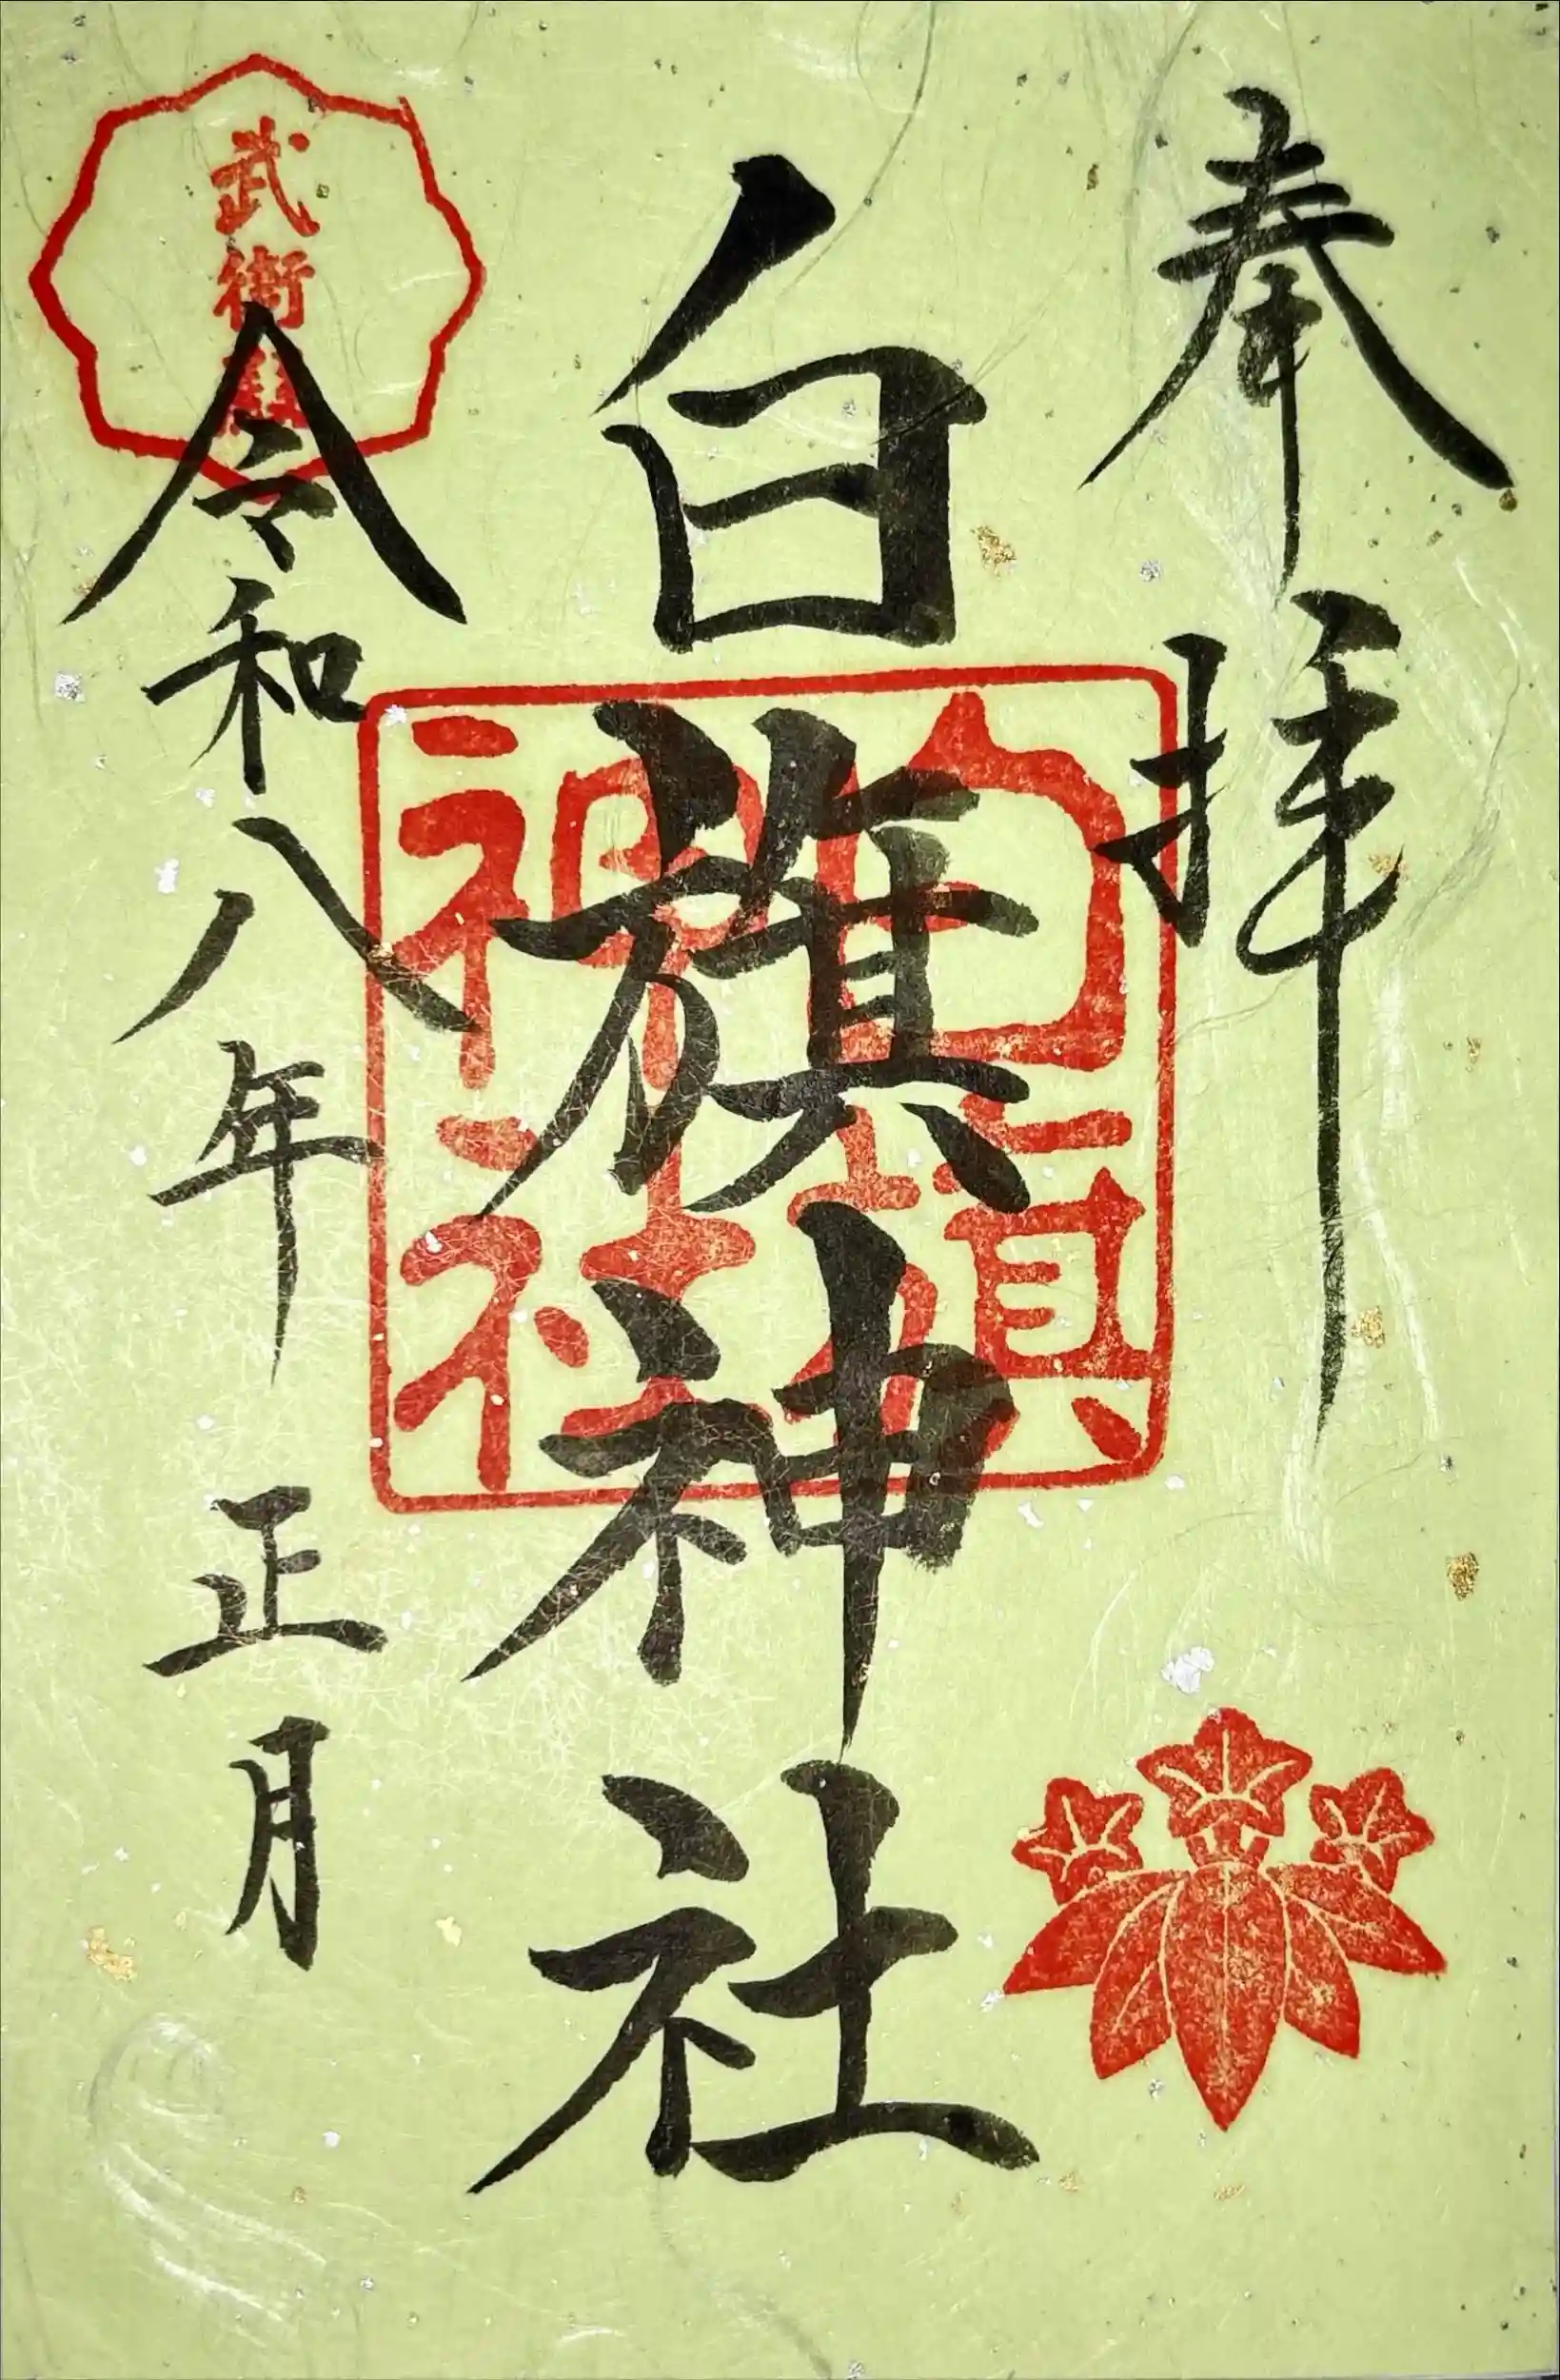 奉拝
白旗神社
白旗神社
武術
令和八年 正月